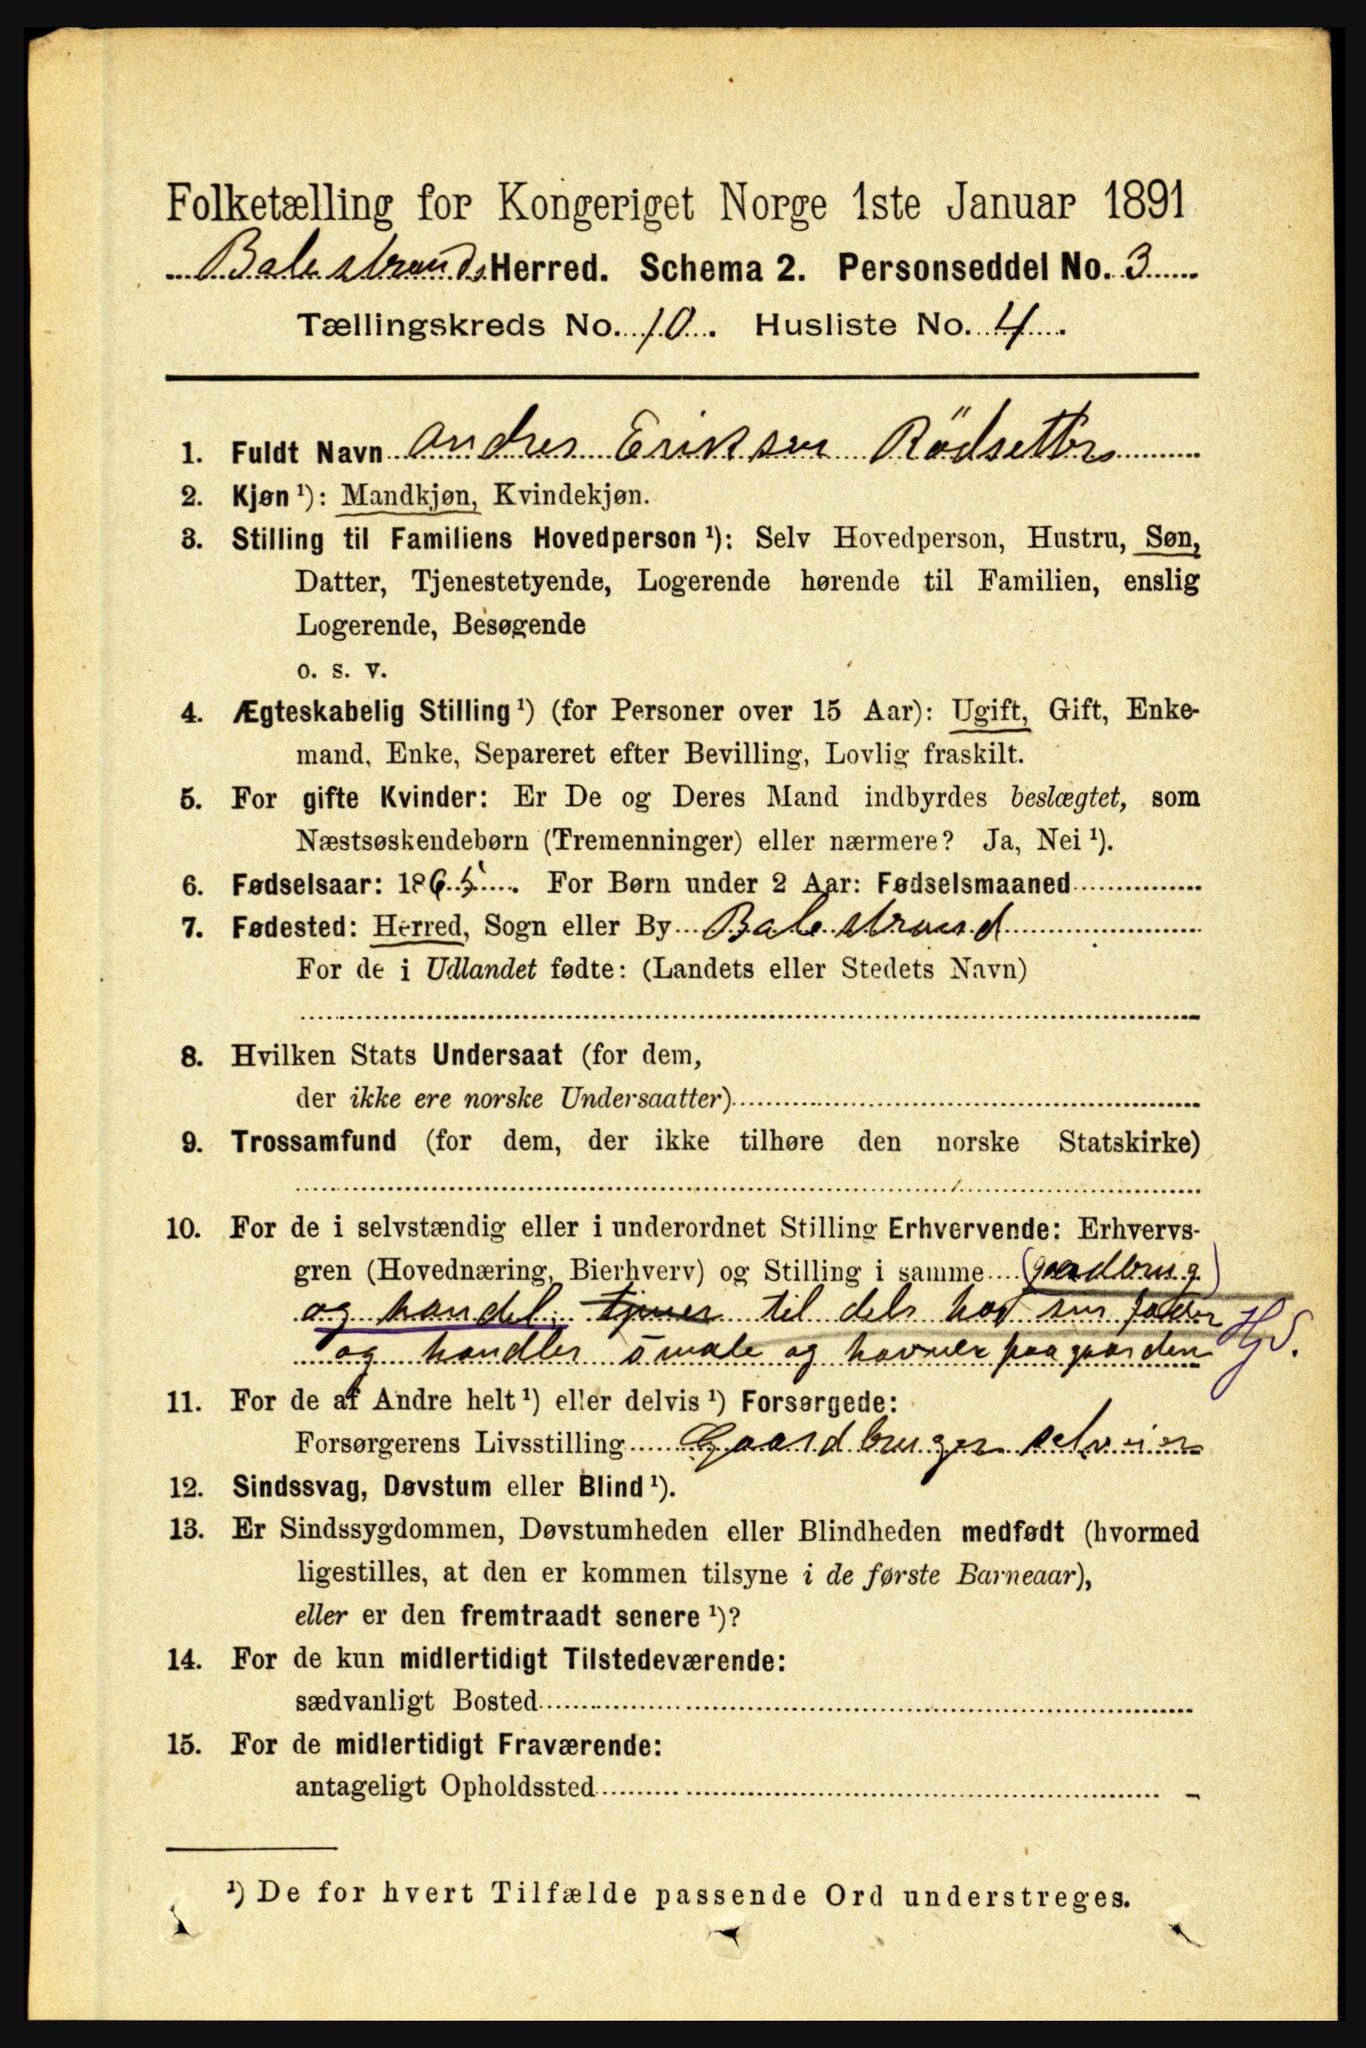 Folketælling for Kongeriget Norge 1ste Januar 1891
Balestrands Herred. Schema 2. Personseddel No. 3
Tællingskreds No. 10. Husliste No. 4.
1. Fuldt Navn Andres Eriksen Rödsetter
2. Kjøn ¹): Mandkjøn, Kvindekjøn.
3. Stilling til Familiens Hovedperson ¹): Selv Hovedperson, Hustru, Søn,
Datter, Tjenestetyende, Logerende hørende til Familien, enslig
Logerende, Besøgende
o. s. v.
4. Ægteskabelig Stilling ¹) (for Personer over 15 Aar): Ugift, Gift, Enke-
mand, Enke, Separeret efter Bevilling, Lovlig fraskilt.
5. For gifte Kvinder: Er De og Deres Mand indbyrdes beslægtet, som
Næstsøskendebørn (Tremenninger) eller nærmere? Ja, Nei ¹).
6. Fødselsaar: 1865. For Børn under 2 Aar: Fødselsmaaned
7. Fødested: Herred, Sogn eller By Balestrand
For de i Udlandet fødte: (Landets eller Stedets Navn)
8. Hvilken Stats Undersaat (for dem,
der ikke ere norske Undersaatter)
9. Trossamfund (for dem, der ikke tilhøre den norske Statskirke)
10. For de i selvstændig eller i underordnet Stilling Erhvervende: Erhvervs-
gren (Hovednæring, Bierhverv) og Stilling i samme (gaardbrug)
og handel, tjener til dels hos sin fader HjS.
og handler smale og havner paa gaarden
11. For de af Andre helt ¹) eller delvis ¹) Forsørgede:
Forsørgerens Livsstilling Gaardbruger selveier
12. Sindssvag, Døvstum eller Blind ¹).
13. Er Sindssygdommen, Døvstumheden eller Blindheden medfødt (hvormed
ligestilles, at den er kommen tilsyne i de første Barneaar),
eller er den fremtraadt senere ¹)?
14. For de kun midlertidigt Tilstedeværende:
sædvanligt Bosted
15. For de midlertidigt Fraværende:
antageligt Opholdssted
¹) De for hvert Tilfælde passende Ord understreges.